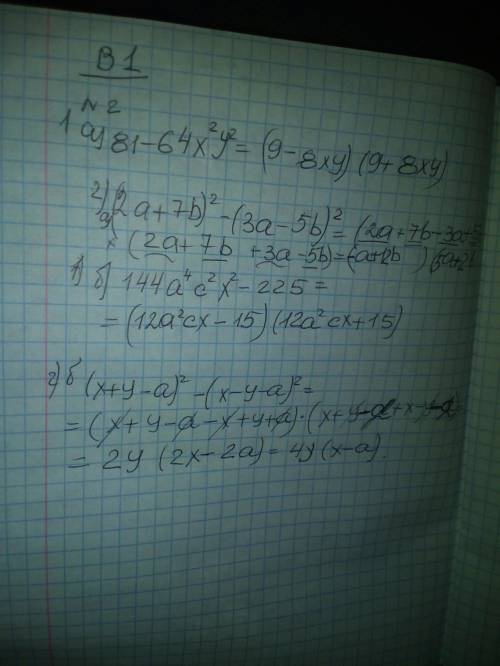 В 1
№ 2
1 а) 81 - 64x²y² = (9 - 8xy) (9 + 8xy)
2) а) (2a + 7b)² - (3a - 5b)² = (2a + 7b - 3a + 5
× (2a + 7b + 3a - 5b) = (-a + 12b) (5a + 2b
1) б) 144a⁴c²x² - 225 =
= (12a²cx - 15) (12a²cx + 15)
2) б (x + y - a)² - (x - y - a)² =
= (x + y - a - x + y + a) · (x + y - a + x - y - a)
= 2y (2x - 2a) = 4y (x - a).